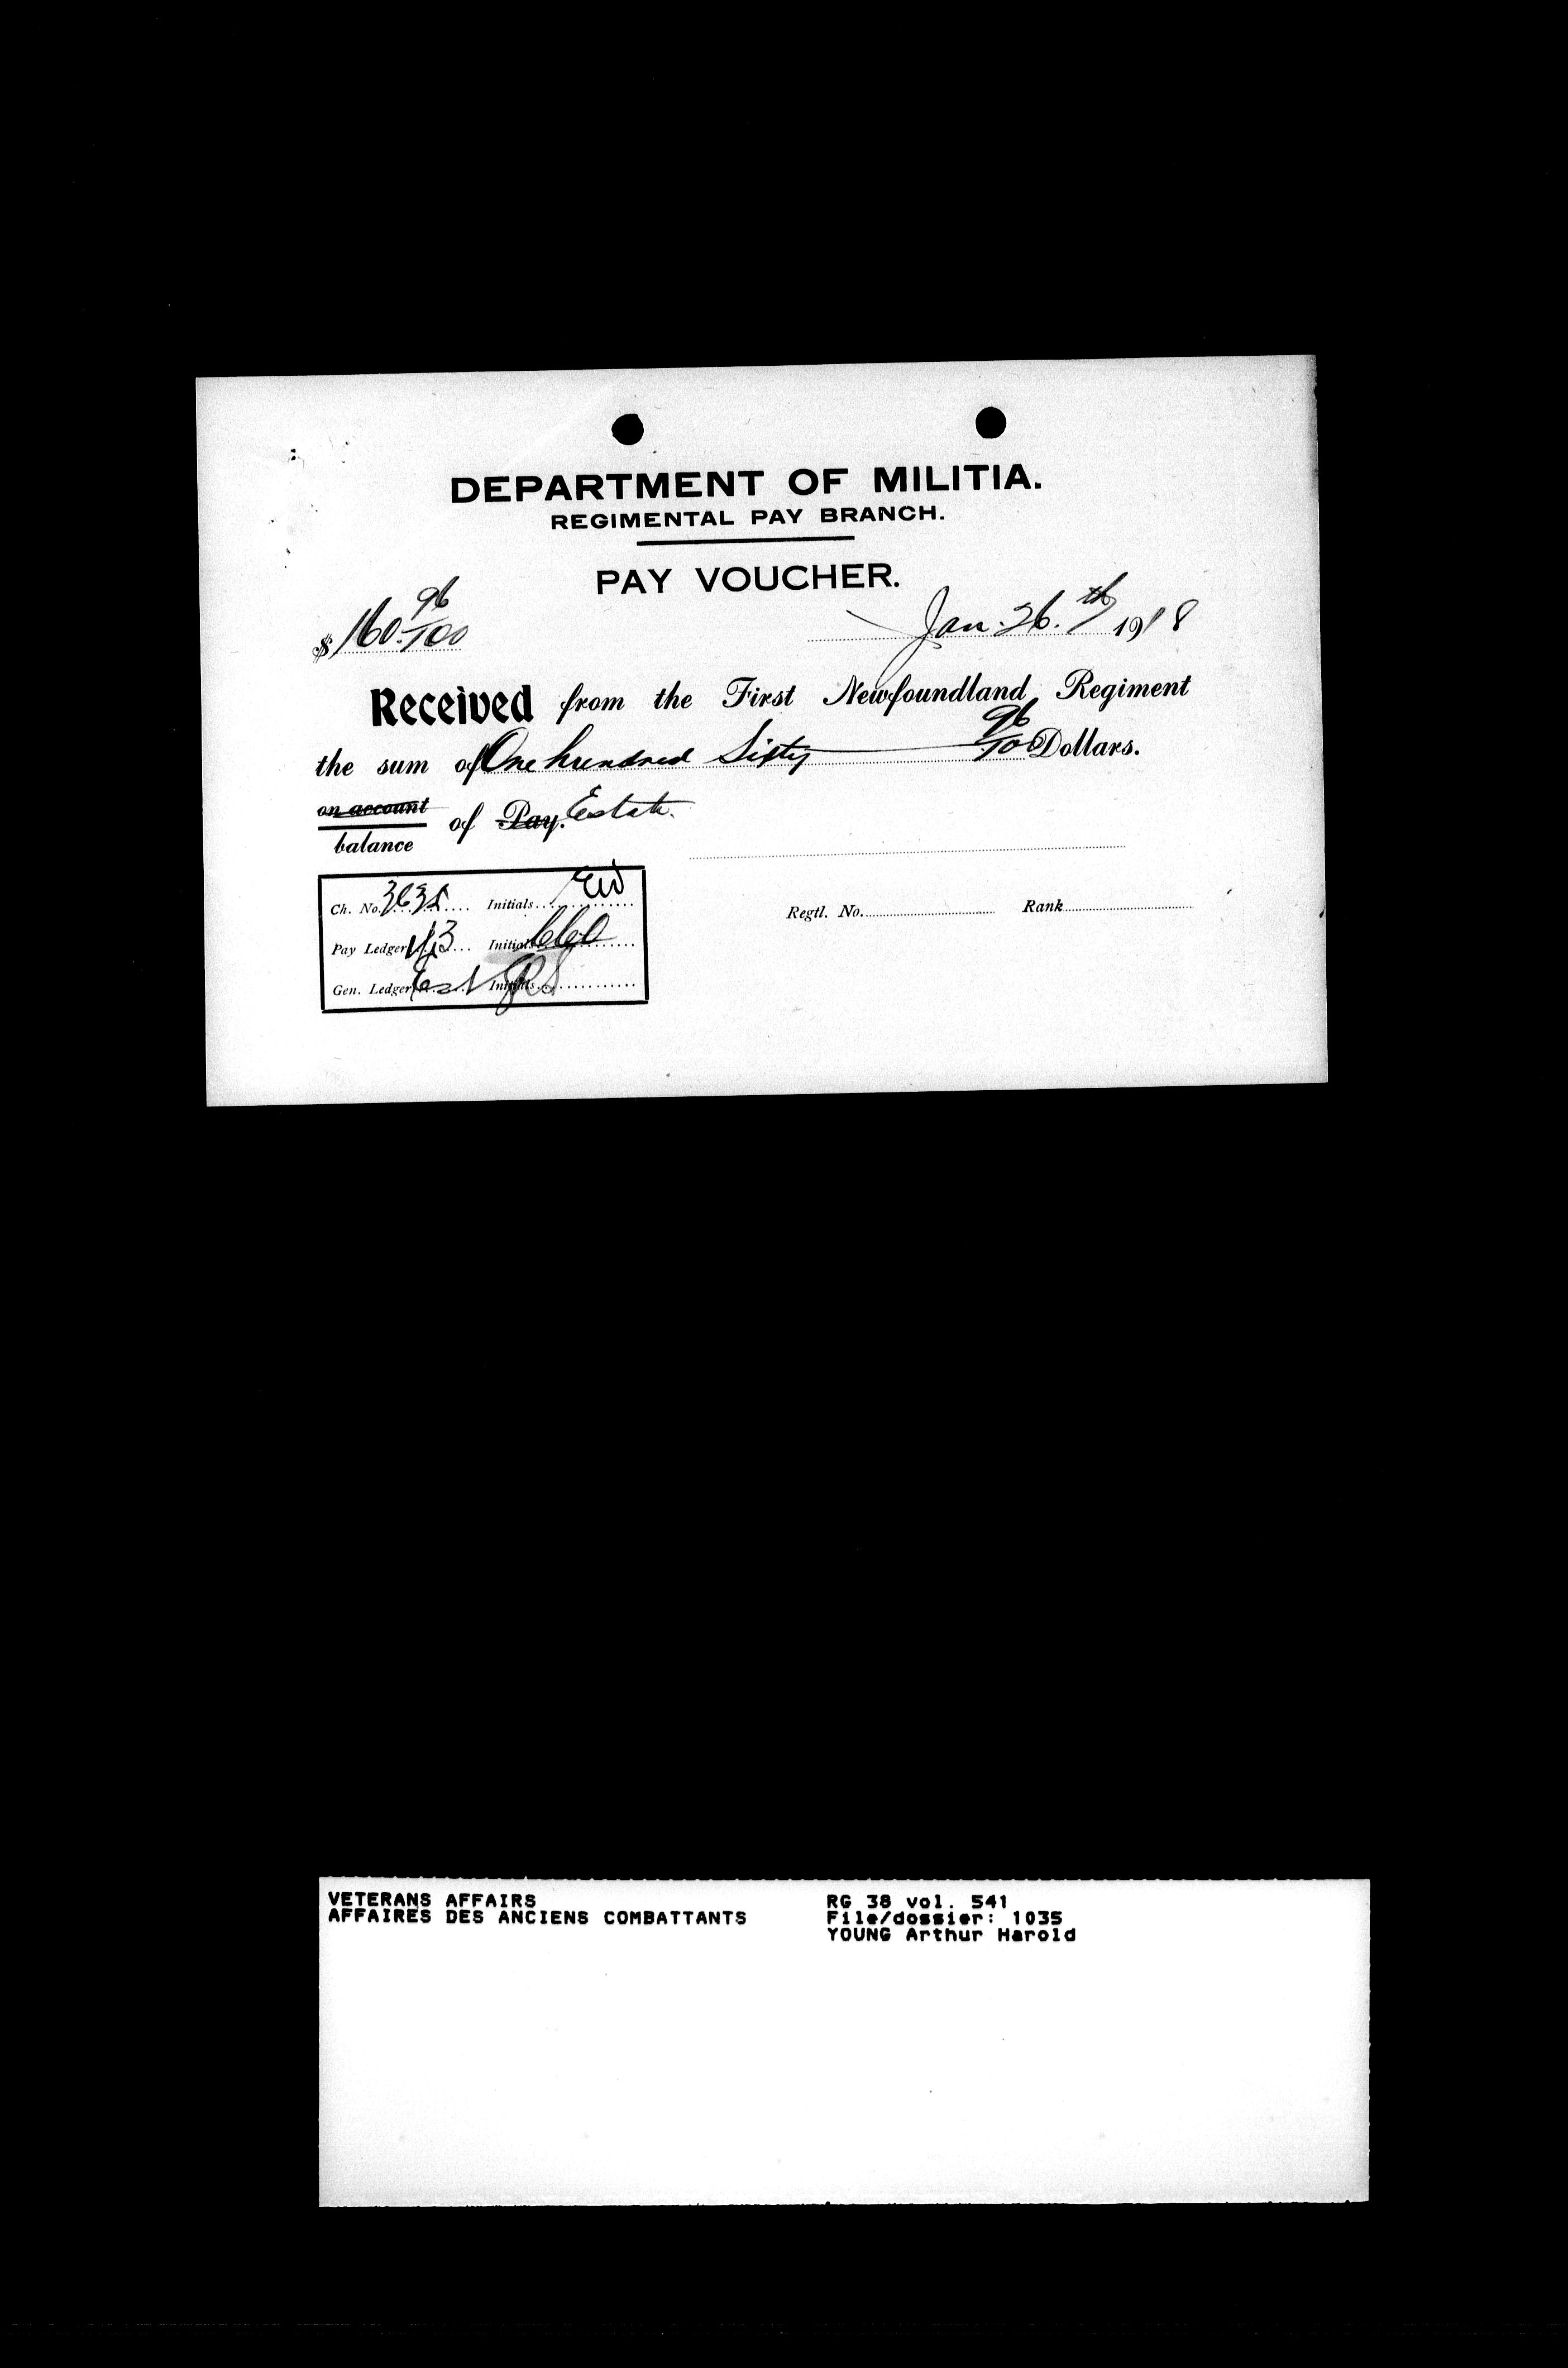 DEPARTMENT OF MILITIA.
REGIMENTAL PAY BRANCH.
PAY VOUCHER.
$160. 96/100 Jan. 26.th 1918
Received from the First Newfoundland Regiment
the sum of One hundred Sixty 96/100 Dollars.
on account
balance of Pay. Estate.
Ch. No. Initials EW
Pay Ledger Initials
Gen. Ledger Est Initials
Regtl. No. Rank
VETERANS AFFAIRS RG 38 vol. 541
AFFAIRES DES ANCIENS COMBATTANTS File/dossier: 1035
YOUNG Arthur Harold